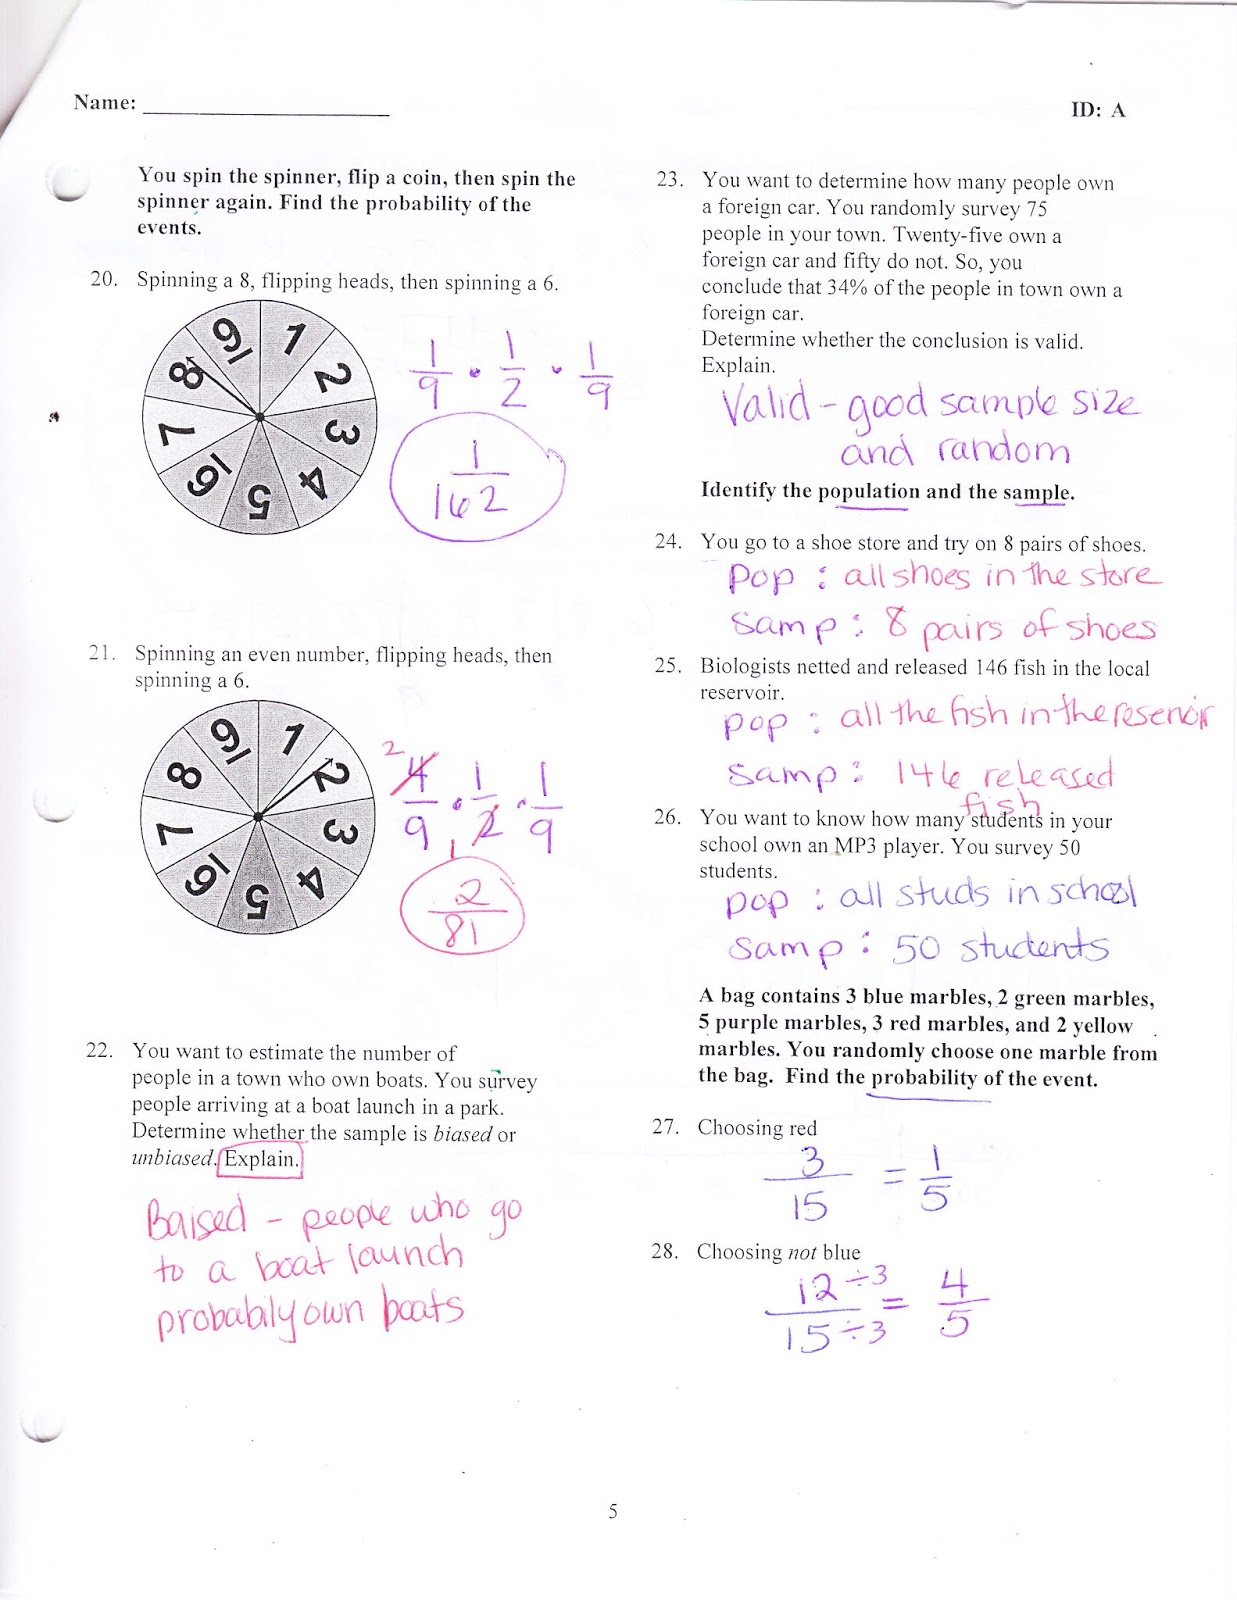 Name:
ID: A
You spin the spinner, flip a coin, then spin the
spinner again. Find the probability of the
events.
20. Spinning a 8, flipping heads, then spinning a 6.
1 2 3 4 5 6 7 8 9
1/9 · 1/2 · 1/9
1/162
21. Spinning an even number, flipping heads, then
spinning a 6.
1 2 3 4 5 6 7 8 9
2
4/9 · 1/2 · 1/9
1
2/81
22. You want to estimate the number of
people in a town who own boats. You survey
people arriving at a boat launch in a park.
Determine whether the sample is biased or
unbiased. Explain.
Baised - people who go
to a boat launch
probabily own boats
23. You want to determine how many people own
a foreign car. You randomly survey 75
people in your town. Twenty-five own a
foreign car and fifty do not. So, you
conclude that 34% of the people in town own a
foreign car.
Determine whether the conclusion is valid.
Explain.
Valid - good sample size
and random
Identify the population and the sample.
24. You go to a shoe store and try on 8 pairs of shoes.
Pop : all shoes in the store
samp : 8 pairs of shoes
25. Biologists netted and released 146 fish in the local
reservoir.
pop : all the fish in the
samp : 146 released
fish
26. You want to know how many students in your
school own an MP3 player. You survey 50
students.
pop : all studs in school
samp : 50 students
A bag contains 3 blue marbles, 2 green marbles,
5 purple marbles, 3 red marbles, and 2 yellow
marbles. You randomly choose one marble from
the bag. Find the probability of the event.
27. Choosing red
3/15 = 1/5
28. Choosing not blue
12÷3/15÷3 = 4/5
5